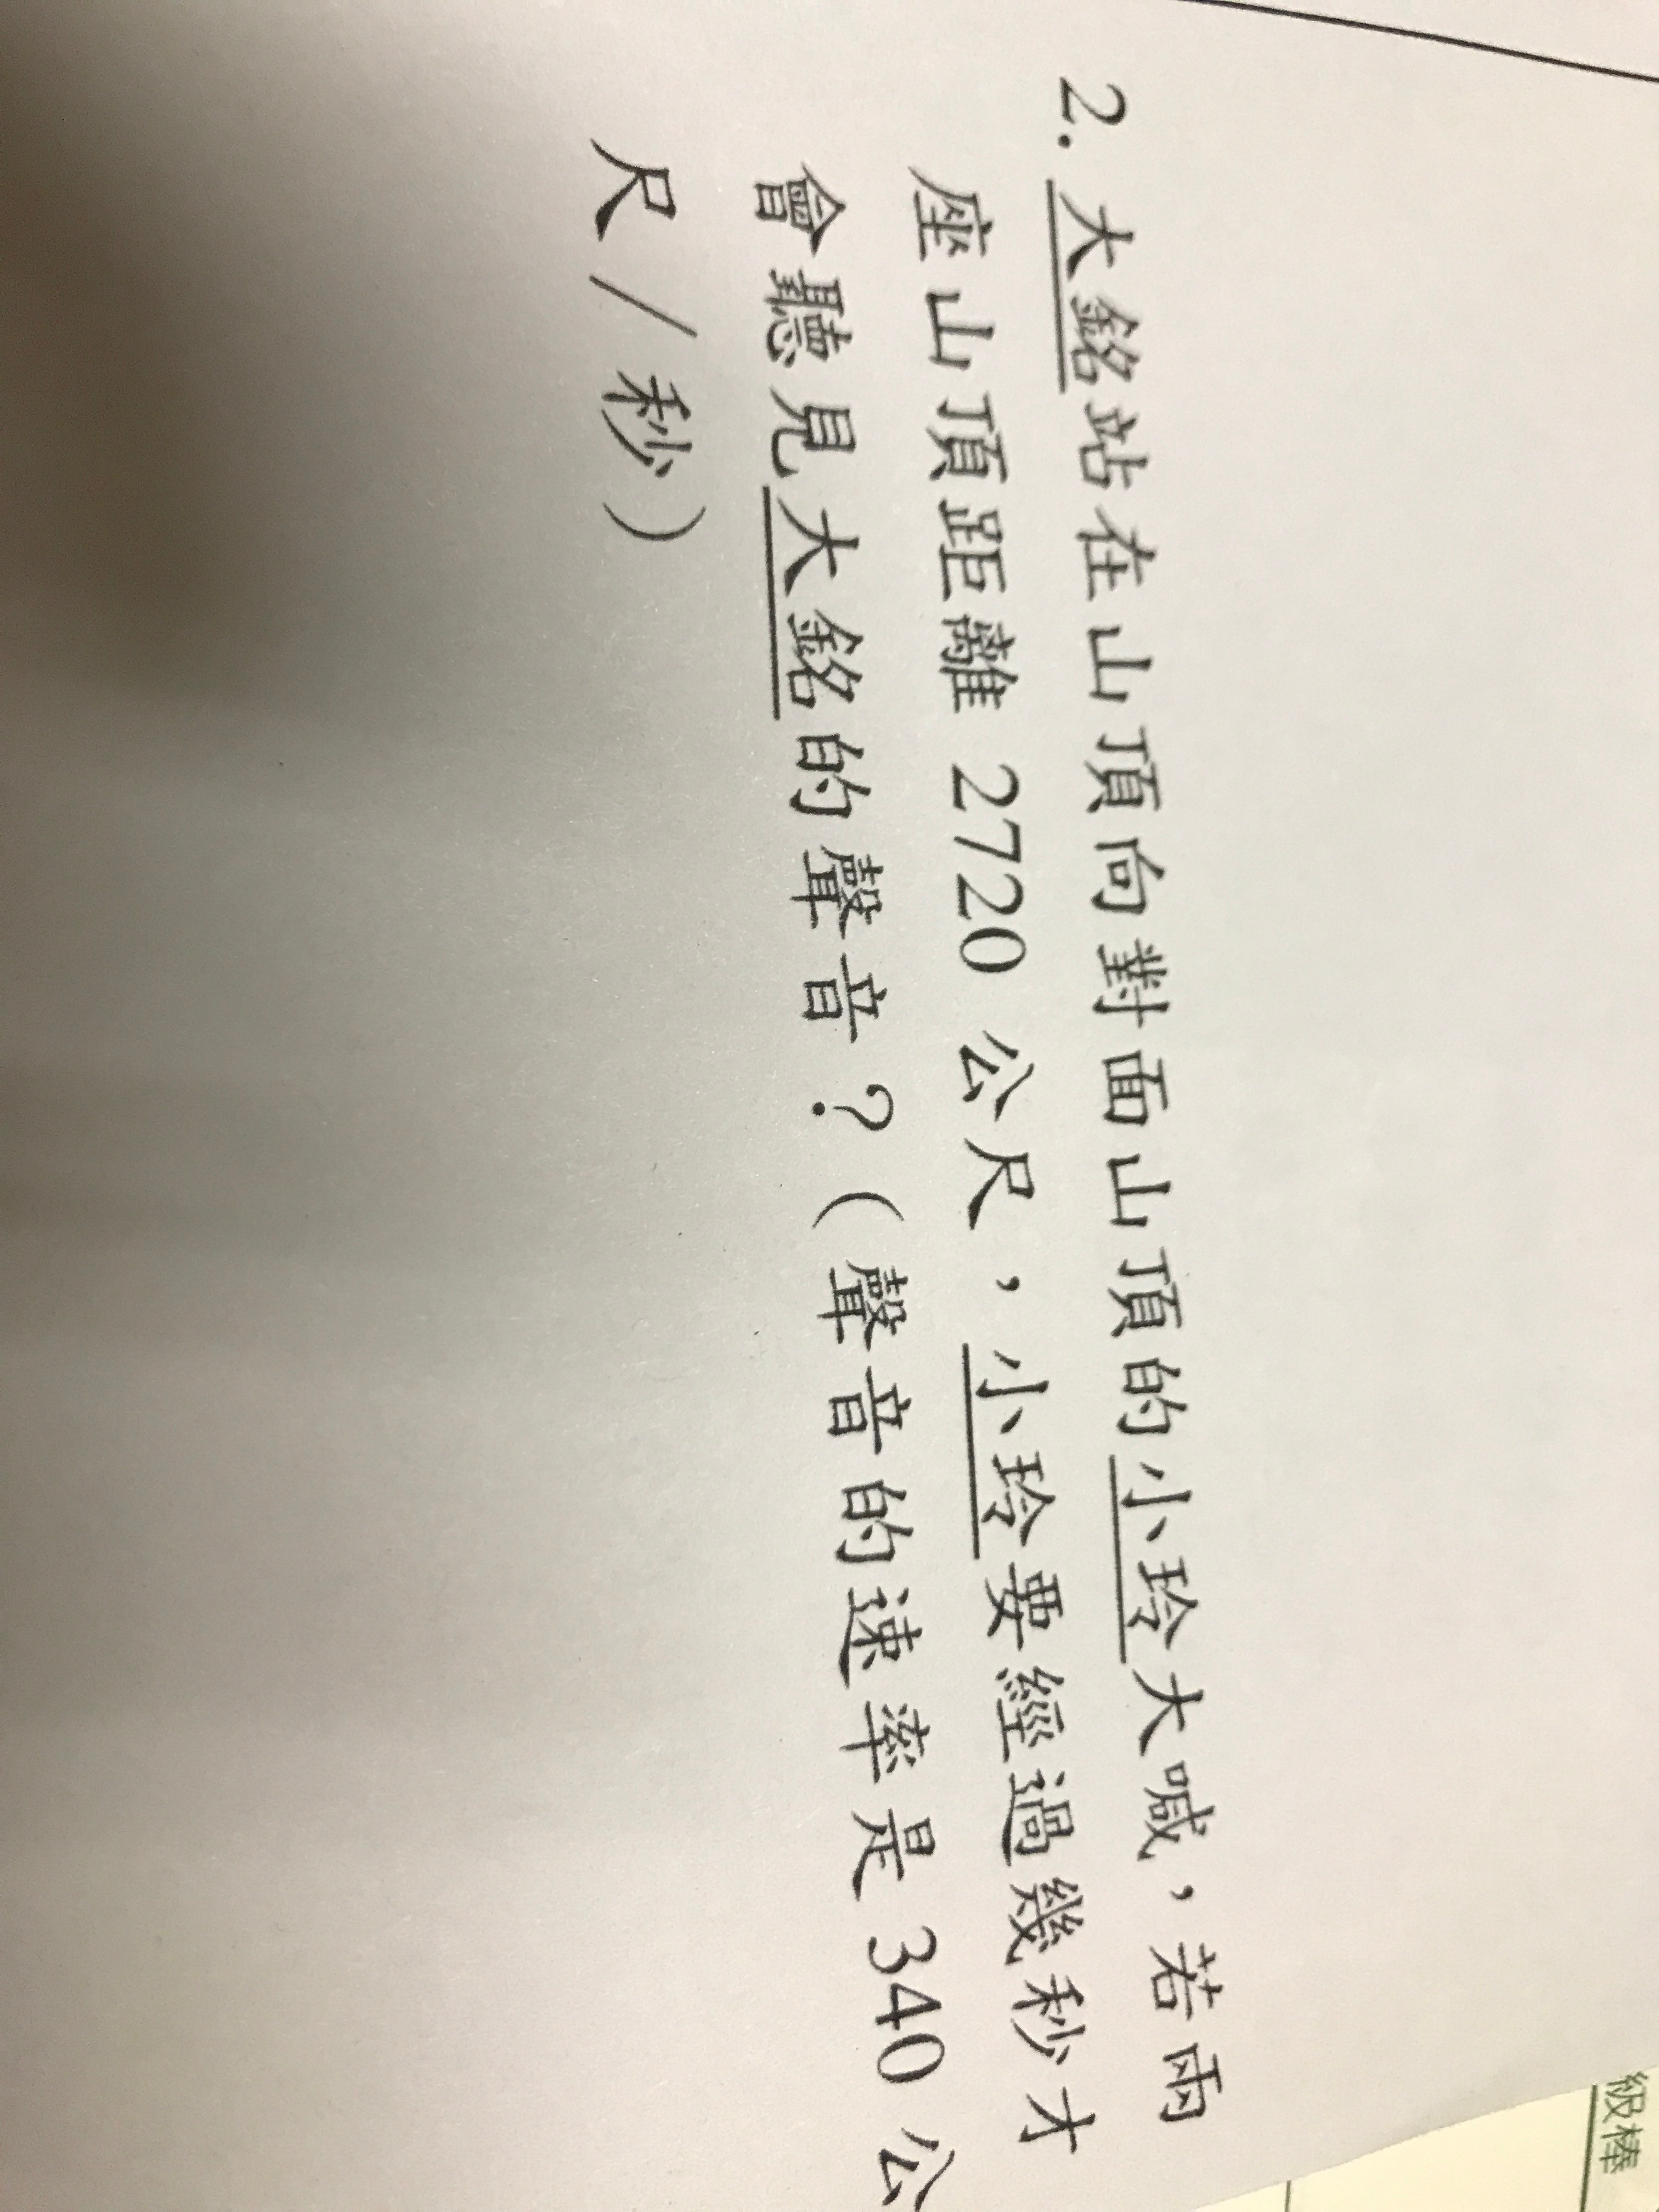 2. 大銘站在山頂向對面山頂的小玲大喊，若兩
座山頂距離 2720 公尺，小玲要經過幾秒才
會聽見大銘的聲音？（聲音的速率是 340 公
尺／秒）
級棒